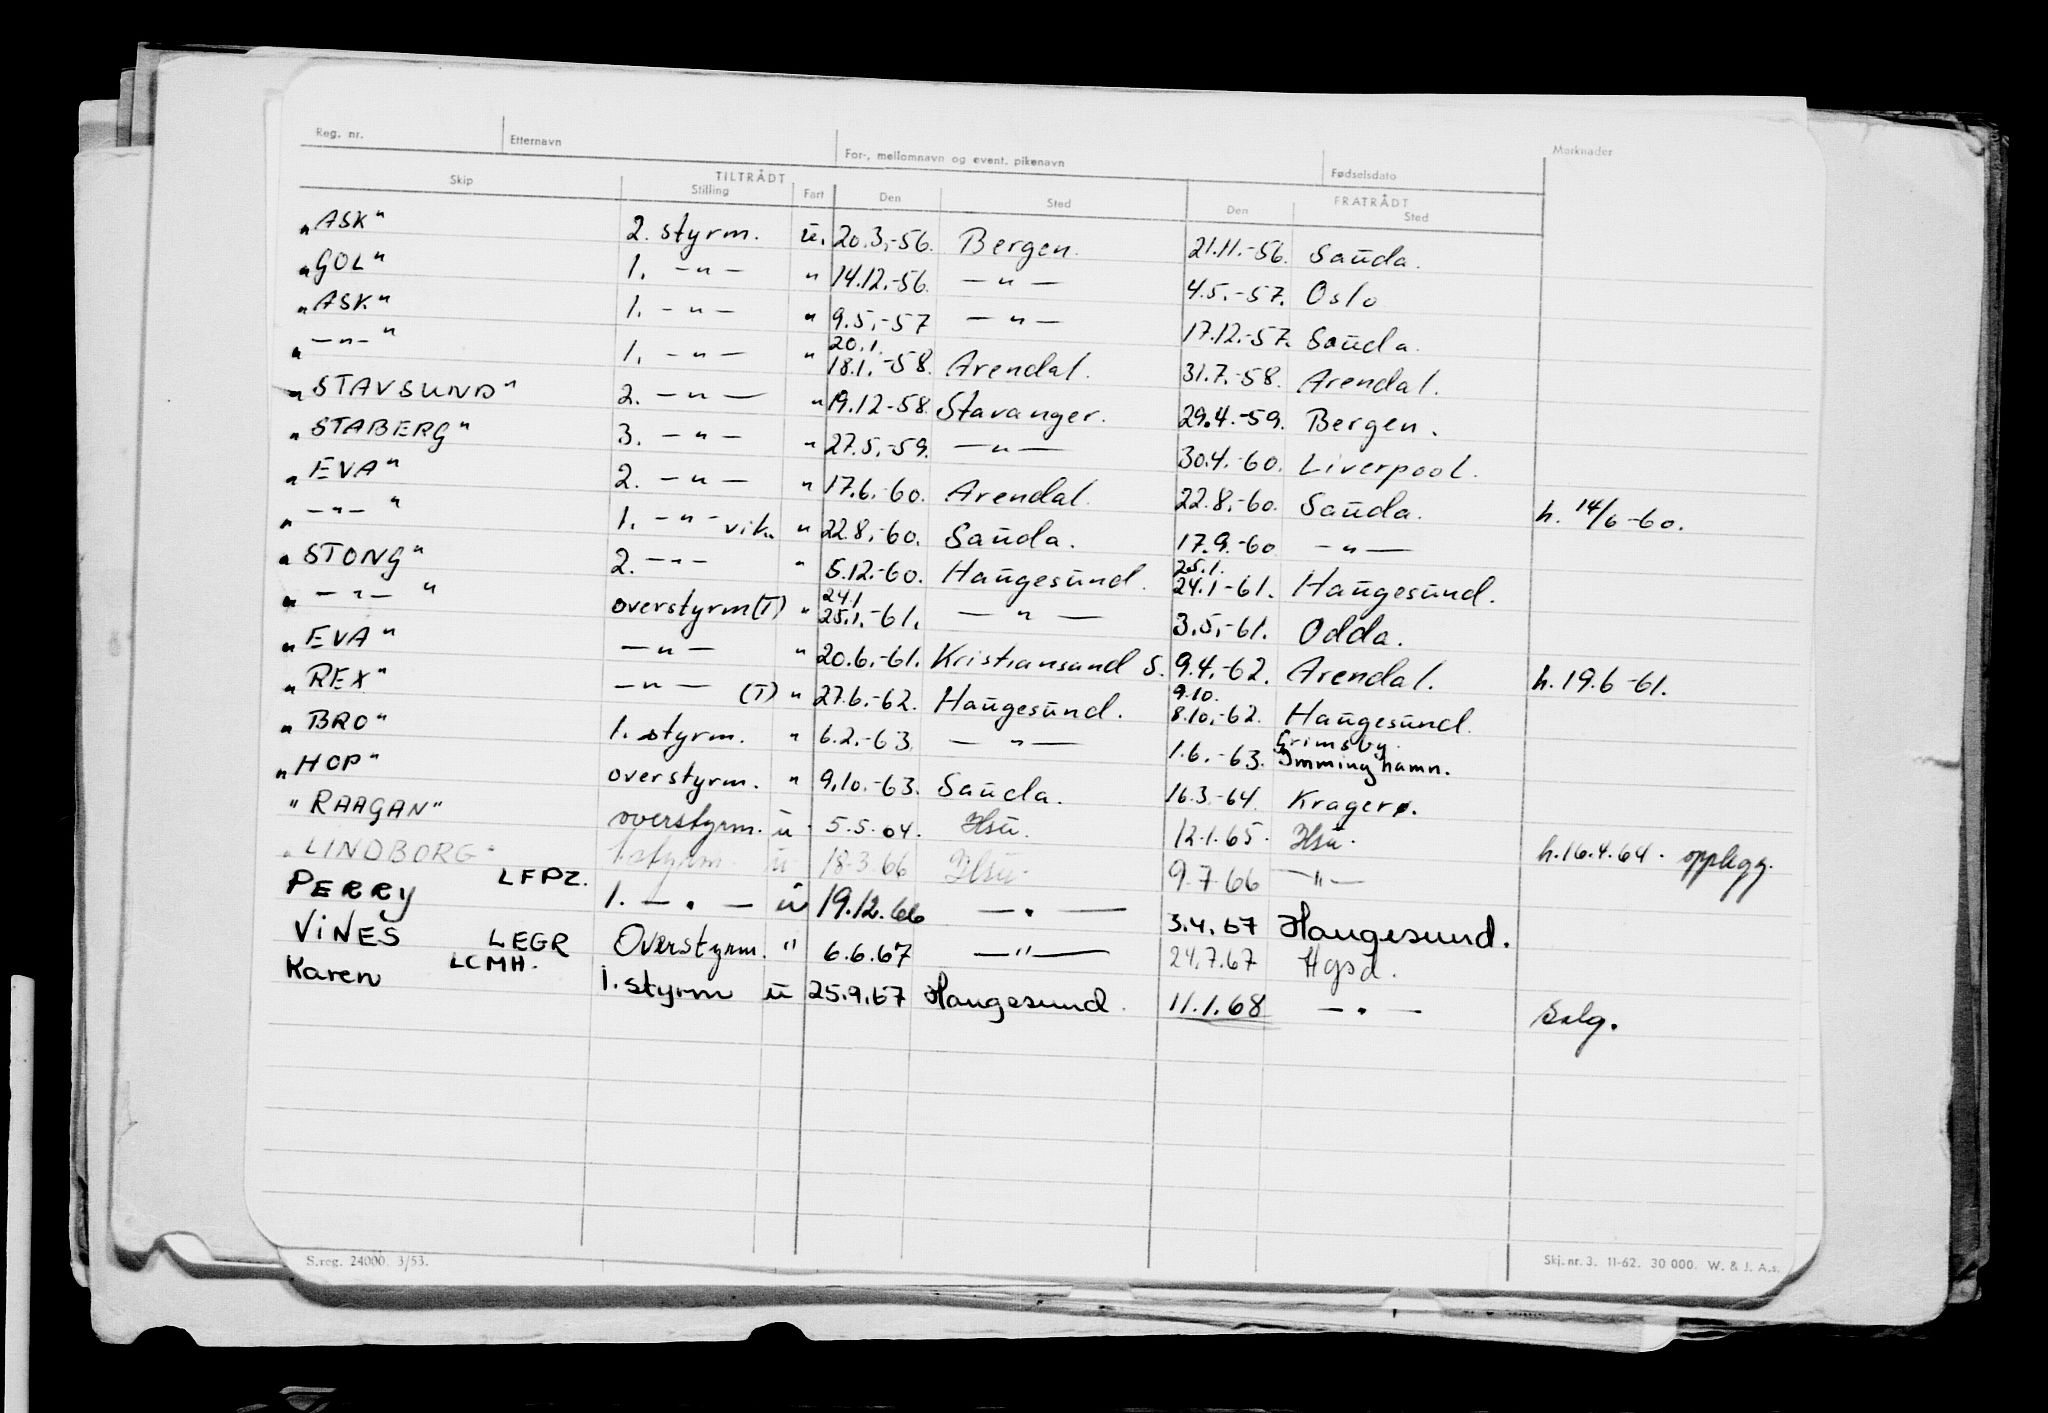 Reg. nr. Etternavn For-, mellomnavn og event. pikenavn Fødselsdato Merknader
Skip TILTRÅDT Stilling Fart Den Sted FRATRÅDT Den Sted
"ASK" 2. styrm. u. 20.3.-56. Bergen. 21.11.-56. Sauda.
"GOL" 1. -"- " 14.12.-56. -"- 4.5.-57. Oslo
"ASK" 1. -"- " 9.5.-57 -"- 17.12.-57. Sauda.
20.1.
"-"-" 1. -"- " 18.1.-58. Arendal. 31.7.-58. Arendal.
"STAVSUND" 2. -"- " 19.12-58. Stavanger. 29.4.-59. Bergen.
"STABERG" 3. -"- " 27.5.-59. -"- 30.4.-60. Liverpool.
"EVA" 2. -"- " 17.6.-60. Arendal. 22.8.-60. Sauda. h. 14/6-60.
"-"-" 1. -"- vik. " 22.8.-60. Sauda. 17.9.-60 -"-
25.1.
"STONG" 2. -"- " 5.12.-60. Haugesund. 24.1-61. Haugesund.
24.1
"-"-" overstyrm(T) " 25.1.-61. -"- 3.5.-61. Odda.
"EVA" -"- " 20.6.-61. Kristiansand S. 9.4.-62. Arendal. h. 19.6-61.
9.10.
"REX" -"- (T) " 27.6.-62. Haugesund. 8.10.-62. Haugesund.
Grimsby.
"BRO" 1. styrm. " 6.2.-63. -"- 1.6.-63. Imminghamn.
"HOP" overstyrm. " 9.10.-63. Sauda. 16.3.-64. Kragerø.
"RAAGAN" overstyrm. u. 5.5.64. Hsu. 12.1.65. Hsu. h.16.4.64. opplegg.
"LINDBORG" 1 styrm. u. 18.3.66 Hsu. 9.7.66 -"-
PERRY LFPZ. 1. -"- u 19.12.66 -"- 3.4.67 Haugesund.
ViNES LEGR Overstyrm. " 6.6.67 -"- 24.7.67 Hgsd.
Karen LCMH. 1. styrm u 25.9.67 Haugesund. 11.1.68 -"- Salg.
S.reg. 24000. 3/53. Skj. nr. 3. 11-62. 30 000. W. & J. A.s.